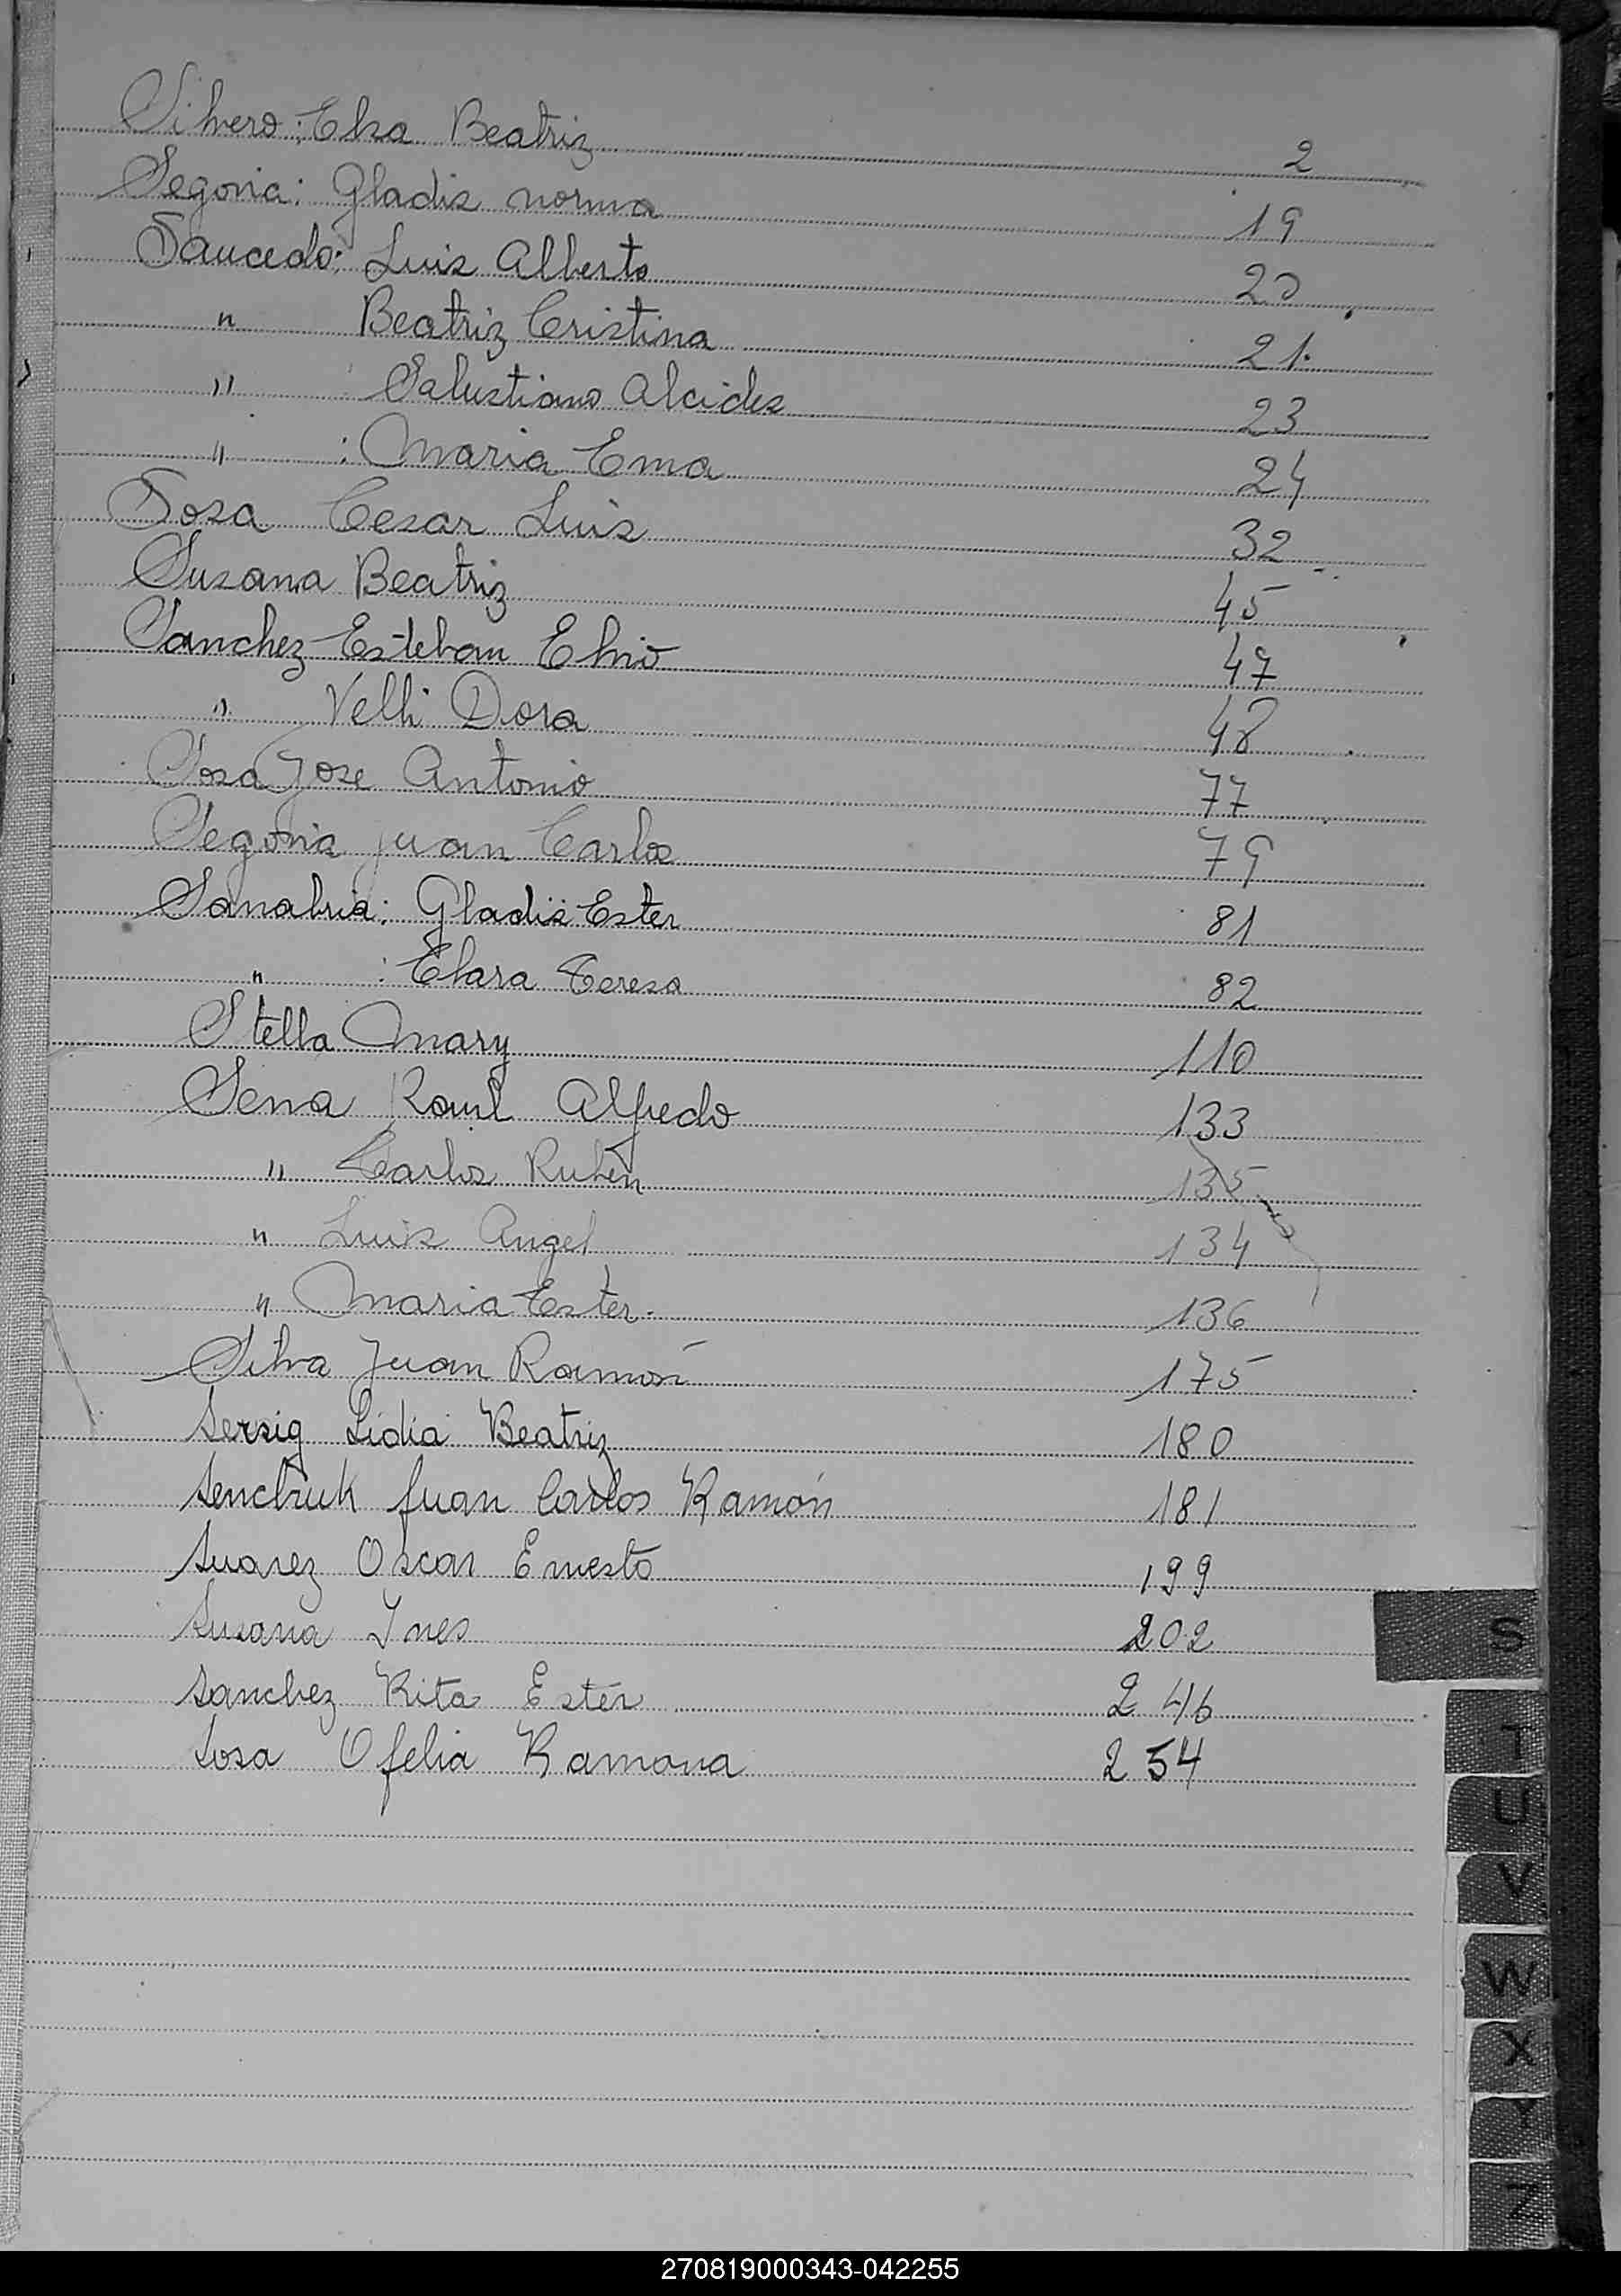 Silvero: Elsa Beatriz 2
Segovia: Gladis norma 19
Saucedo: Luis Alberto 20
" Beatriz Cristina 21.
" Salustiano Alcides 23
" : Maria Ema 24
Sosa Cesar Luis 32
Susana Beatriz 45
Sanchez Esteban Elvio 47
" Velli Dora 48
Sosa Jose Antonio 77
Segovia Juan Carlos 79
Sanabria: Gladis Ester 81
" : Clara Teresa 82
Stella Mary 110
Sena Raul Alfredo 133
" Carlos Rubén 135
" Luis Angel 134
" Maria Ester. 136
Silva Juan Ramón 175
Sersig Lidia Beatriz 180
Senchuk Juan Carlos Ramón 181
Suarez Oscar Ernesto 199
Susana Ines 202
Sanchez Rita Ester 246
Sosa Ofelia Ramona 254
S
T
U
V
W
X
Y
Z
270819000343-042255